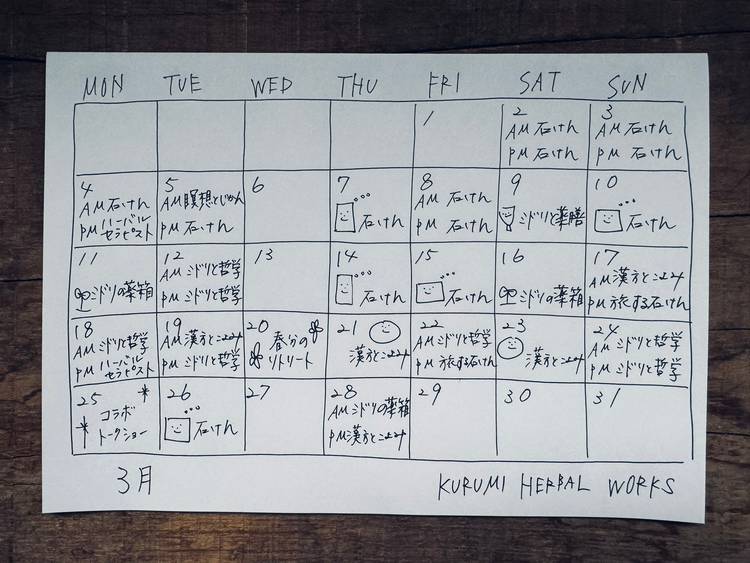 MON TUE WED THU FRI SAT SUN
1
2
AM 石けん
PM 石けん
3
AM 石けん
PM 石けん
4
AM 石けん
PM ハーバル
セラピスト
5
AM 瞑想とじかん
PM 石けん
6
7
石けん
8
AM 石けん
PM 石けん
9
ミドリと薬膳
10
石けん
11
ミドリの薬箱
12
AM ミドリと哲学
PM ミドリと哲学
13
14
石けん
15
石けん
16
ミドリの薬箱
17
AM 漢方とこよみ
PM 旅する石けん
18
AM ミドリと哲学
PM ハーバル
セラピスト
19
AM 漢方とこよみ
PM ミドリと哲学
20
春分の
リトリート
21
漢方とこよみ
22
AM ミドリと哲学
PM 旅する石けん
23
漢方とこよみ
24
AM ミドリと哲学
PM ミドリと哲学
25
コラボ
トークショー
26
石けん
27
28
AM ミドリの薬箱
PM 漢方とこよみ
29
30
31
3月
KURUMI HERBAL WORKS